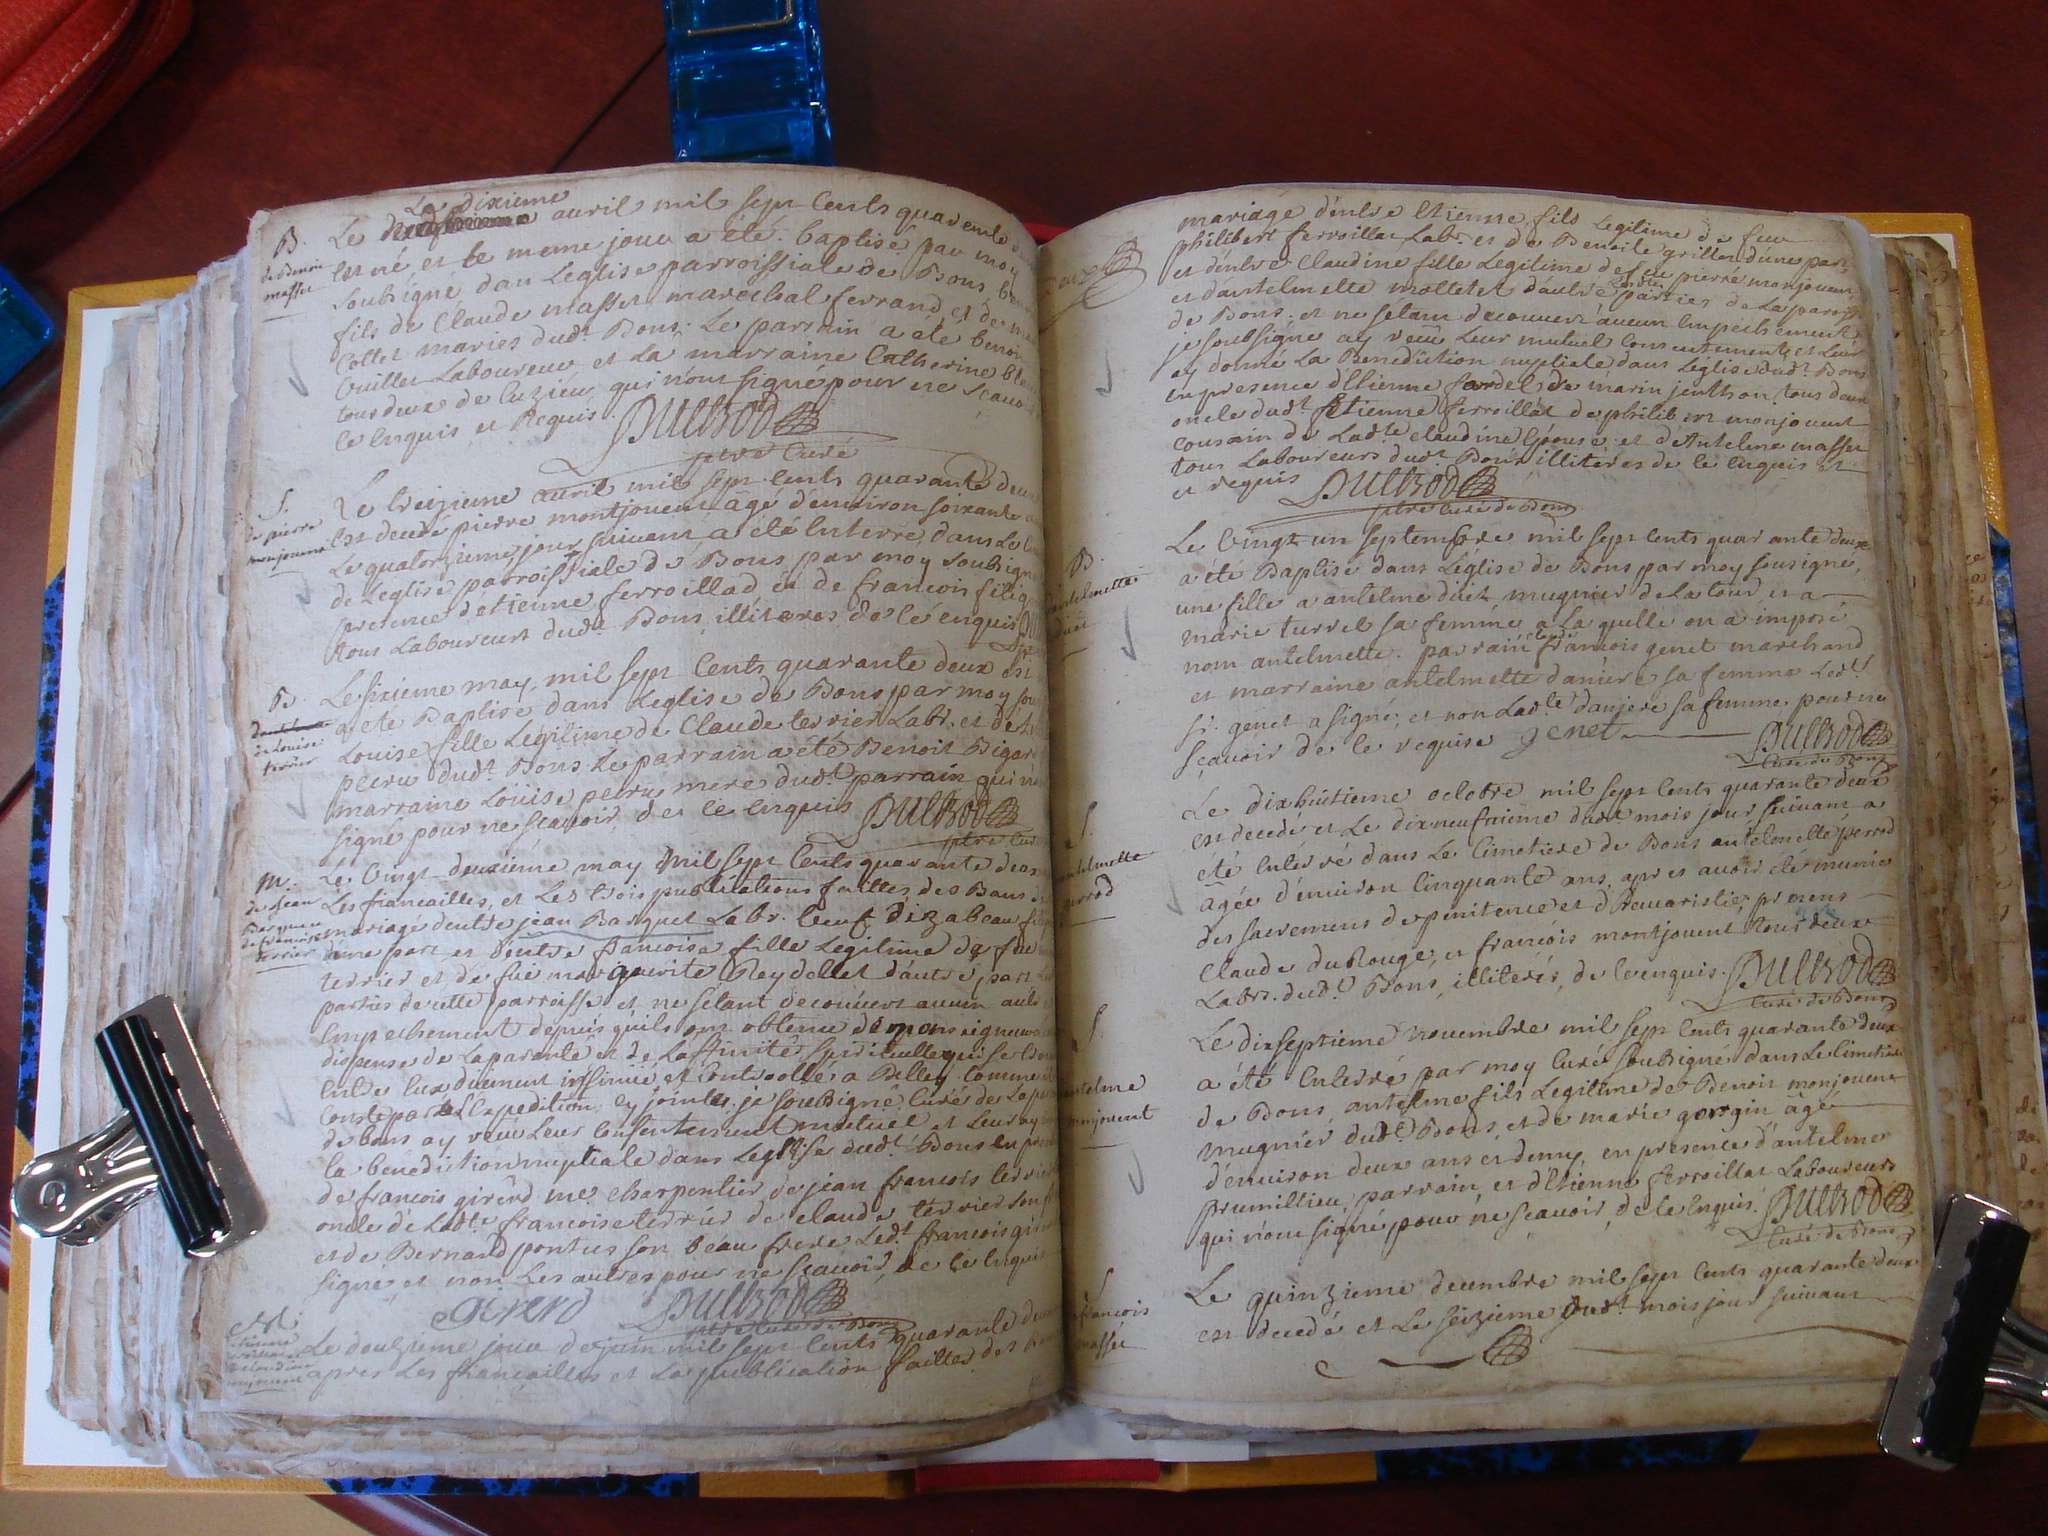 Le dixieme
B. Le avril mil sept cents quarente
de Benoit est né, et le meme jour a été baptisé par moy
masset soubsigné dans Leglise parroissiale de Bons
fils de Claude masset marechal ferrand, et de
Collet mariés dudt Bons. Le parrain a été benoit
Vuillet Laboureur, et La marraine Catherine
tous deux de Luzieu, qui n'ont signé pour ne scavoir
ce enquis et Requis
ptre Curé
S. Le treizieme avril mil sept cents quarante deux
de pierre est decedé pierre montjouent agé d'environ soixante
monjouent Le quatorzieme jour suivant a été Enterré dans Le
de Leglise parroissiale de Bons par moy soubsigné
presence d'etienne ferroillad et de françois
tous Laboureurs dudt Bons illiteres de ce enquis
B. Le sixieme may mil sept cents quarante deux
a été Baptisé dans Leglise de Bons par moy
de Louise Louise fille Legitime de Claude terrier Labr. et de
terrier perru dudt Bons Le parrain a été Benoit
marraine Louise perru mere dudt parrain qui n'ont
signé pour ne scavoir de ce enquis
ptre Curé
m. Le vingt deuxiéme may mil sept cents quarante deux
de jean Les françailles, et Les trois publications faittes des Bans
Barquet mariage d'entre jean Barquet Labr. veuf
de francoise d'une part et d'entre françoise fille Legitime de feu
terrier terrier et de fuë marguerite Reydellet d'autre part
parties de cette parroisse et ne s'étant decouvert aucun autre
Empechement depuis qu'ils ont obtenu de monseigneur
dispense de La paranté et de L'affinité spirituelle qui se trouve
Entre Eux duement insinuée et Controollée a Belley comme
Conste par L'Expedition cy jointe, je soubsigné Curé de La
de bons ay reçu Leur consentement mutuel et Leur ay
la benediction nuptiale dans Leglise dudt Bons en presence
de françois girerd me charpentier de jean françois terrier
oncle de Ladte françoise terrier de claude terrier son
et de Bernard pontus son beau frere Ledt françois
signé, et non Les autres pour ne scavoir, de ce enquis
Girerd
ptre Curé de Bons
M. Le douzieme jour de juin mil sept cents quarante deux
apres Les françailles et La publication faittes des
mariage d'entre Etienne fils Legitime de feu
philibert ferroillat Labr. et de Benoite grillon d'une part
et d'entre Claudine fille Legitime de feu pierre monjouent
et d'antelmette mollet d'autre parties de La parroisse
de Bons, et ne s'etant decouvert aucun Empechement
je soubsigné ay reçu Leur mutuel consentement et Leur
ay donné La Benediction nuptiale dans Leglise dudt Bons
En presence d'Etienne fardel, de marin jenthon tous deux
oncle dudt Etienne ferroillat de philibert monjouent
cousin de Ladte claudine Epouse et d'Antelme masset
tous Laboureurs dudt Bons illiteres de ce enquis et
et requis
ptre Curé de Bons
B. Le vingt un septembre mil sept cents quarante deux
antelmette a été Baptisé dans L'église de Bons par moy sousigné,
une fille a antelme mugnier de La tour, et a
marie turrel sa femme a La quelle on a imposé
nom antelmette. parrain françois genet marchand
et marraine antelmette danjere sa femme Ledt
sr. genet a signé, et non Ladte danjere sa femme pour ne
sçavoir de ce requise genet
Curé de Bons
S. Le dixhuitieme octobre mil sept cents quarante deux
antelmette est decedé et Le dixneufvieme dudt mois jour suivant a
perrod été Enterré dans Le Cimetiere de Bons antelmette perrod
agée d'environ Cinquante ans, apres avoir été munie
des sacremens de penitence et d'Eucaristie, presens
Claude duRouge, et françois montjouent tous deux
Labrs. dudt Bons, illiterés, de ce enquis.
Curé de Bons
S. Le dixseptieme novembre mil sept cents quarante deux
antelme a été Enterré par moy Curé soubsigné dans Le Cimetiere
monjouent de Bons, antelme fils Legitime de Benoit monjouent
mugnier dudt Bons, et de marie gorgin agé
d'environ deux ans et demy, en presence d'antelme
prumillieu, parrain, et d'Etienne ferroillat Laboureurs
qui n'ont signé pour ne scavoir, de ce enquis.
Curé de Bons
S. Le quinzieme decembre mil sept cents quarante deux
françois est decedé et Le seizieme dudt mois jour suivant
masset